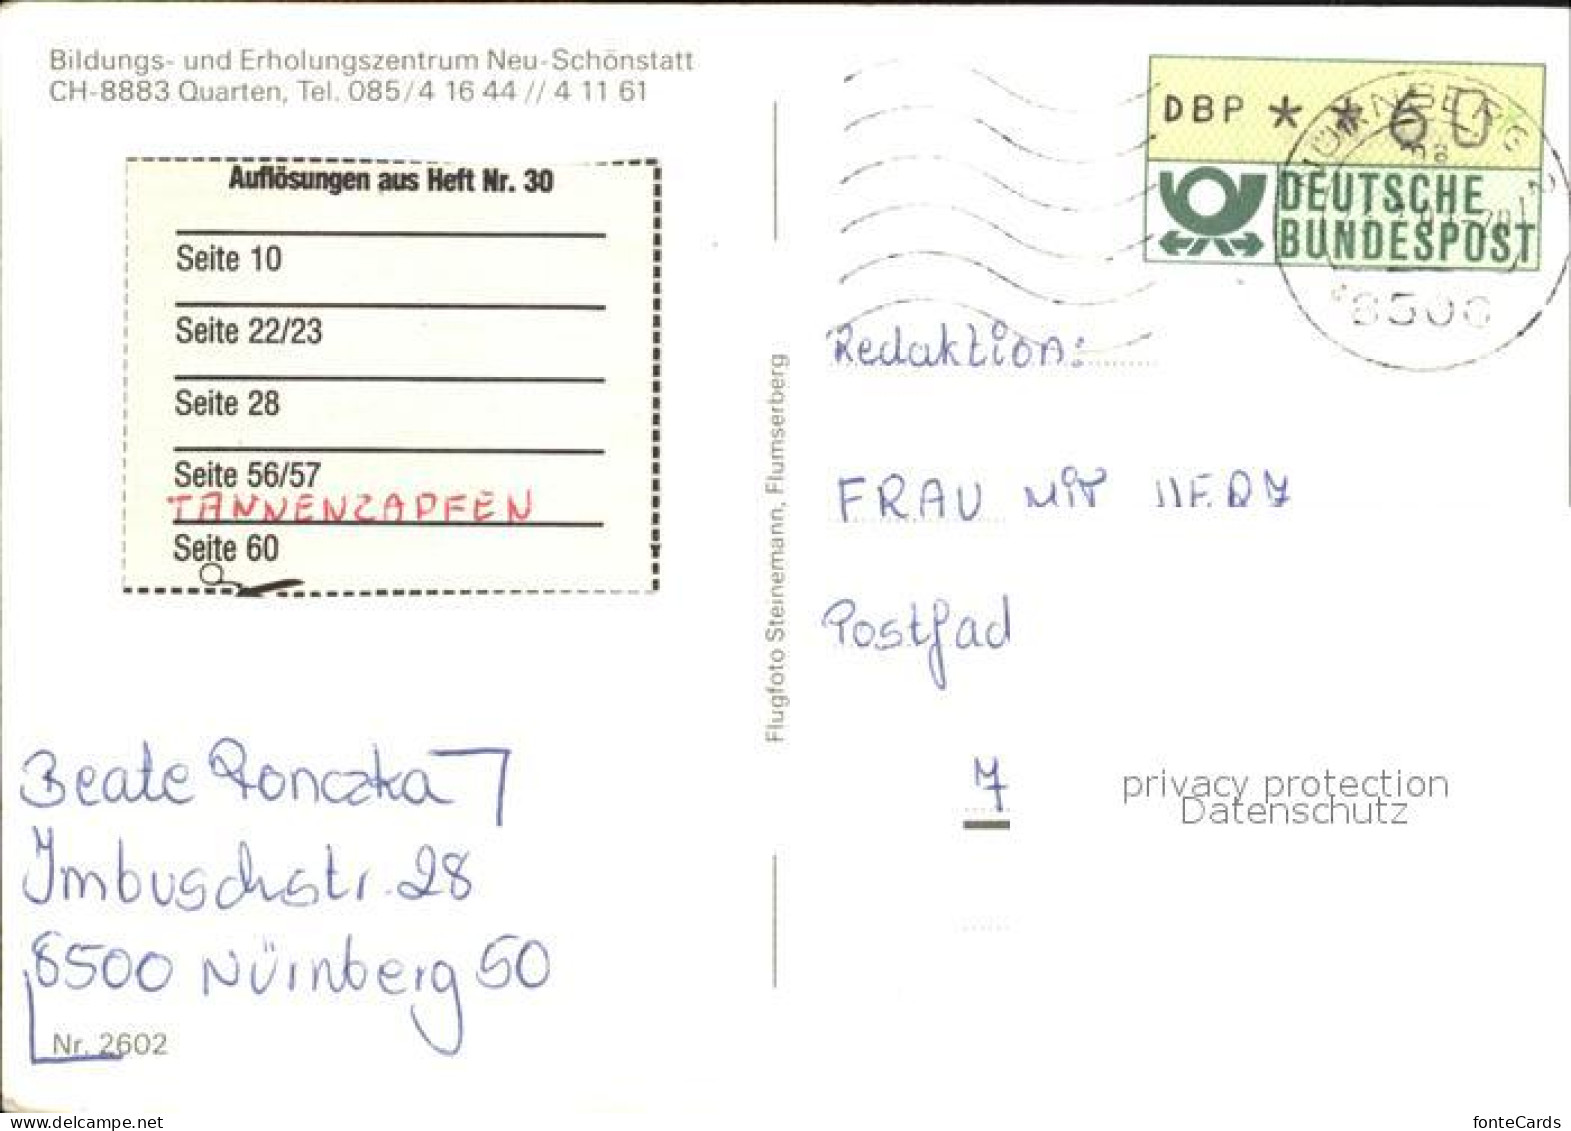 Bildungs- und Erholungszentrum Neu-Schönstatt
CH-8883 Quarten, Tel. 085/4 16 44 // 4 11 61
Auflösungen aus Heft Nr. 30
Seite 10
Seite 22/23
Seite 28
Seite 56/57
TANNENZAPFEN
Seite 60
Beate Ronczka
Imbuschstr. 28
8500 Nürnberg 50
Nr. 2602
Flugfoto Steinemann, Flumserberg
DBP * * 60
DEUTSCHE
BUNDESPOST
NÜRNBERG
8500
Redaktion:
FRAU MIT HERZ
Postfad
7
privacy protection
Datenschutz
www.delcampe.net
fonteCards